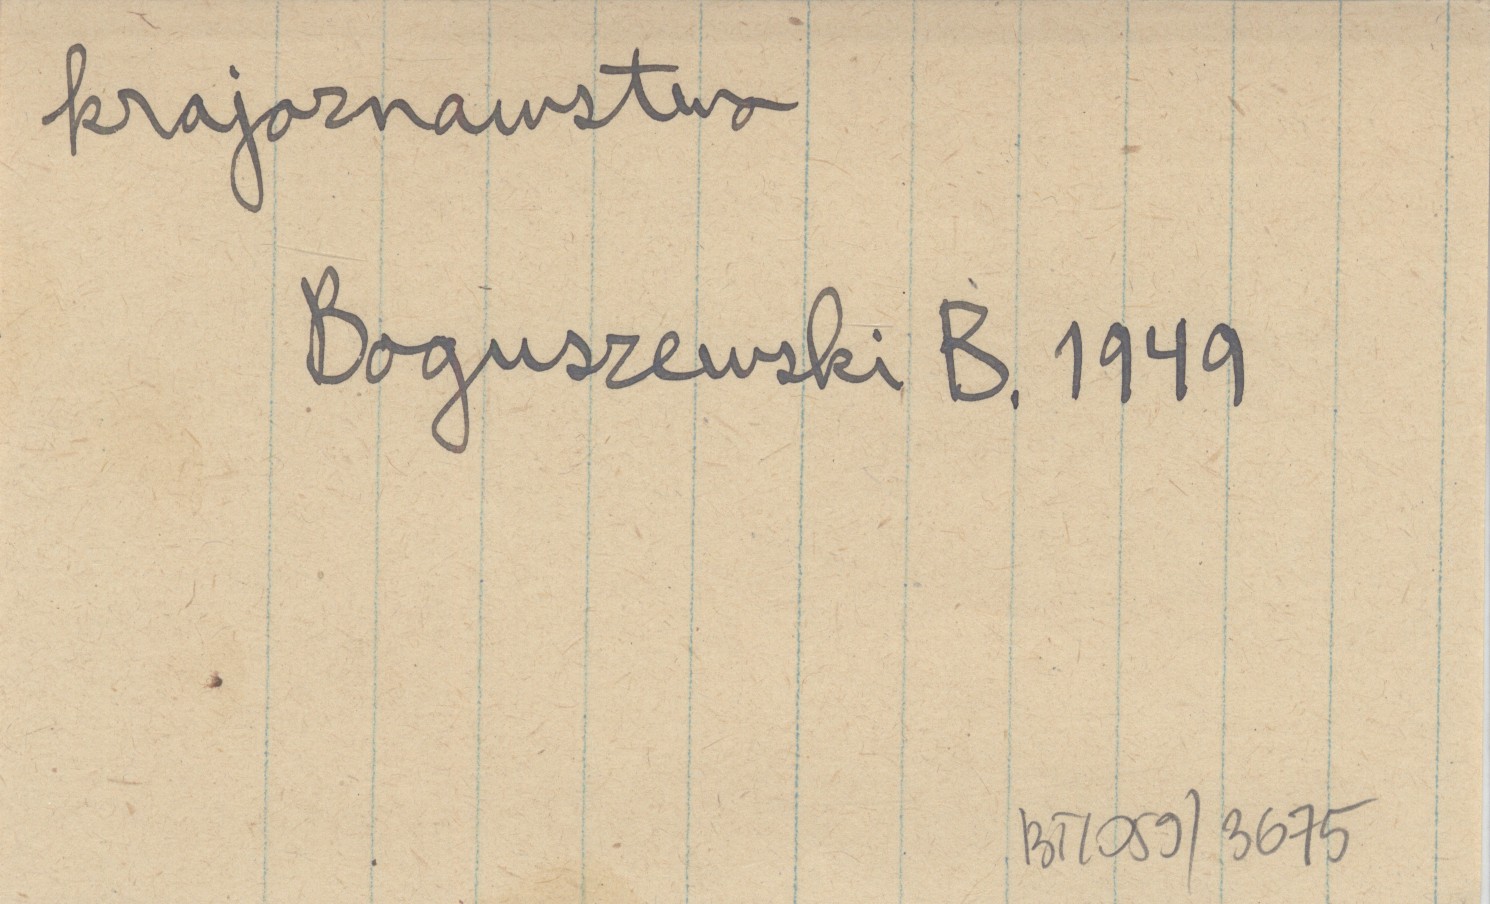 krajoznawstwo
Boguszewski B. 1949
BT/059/3675